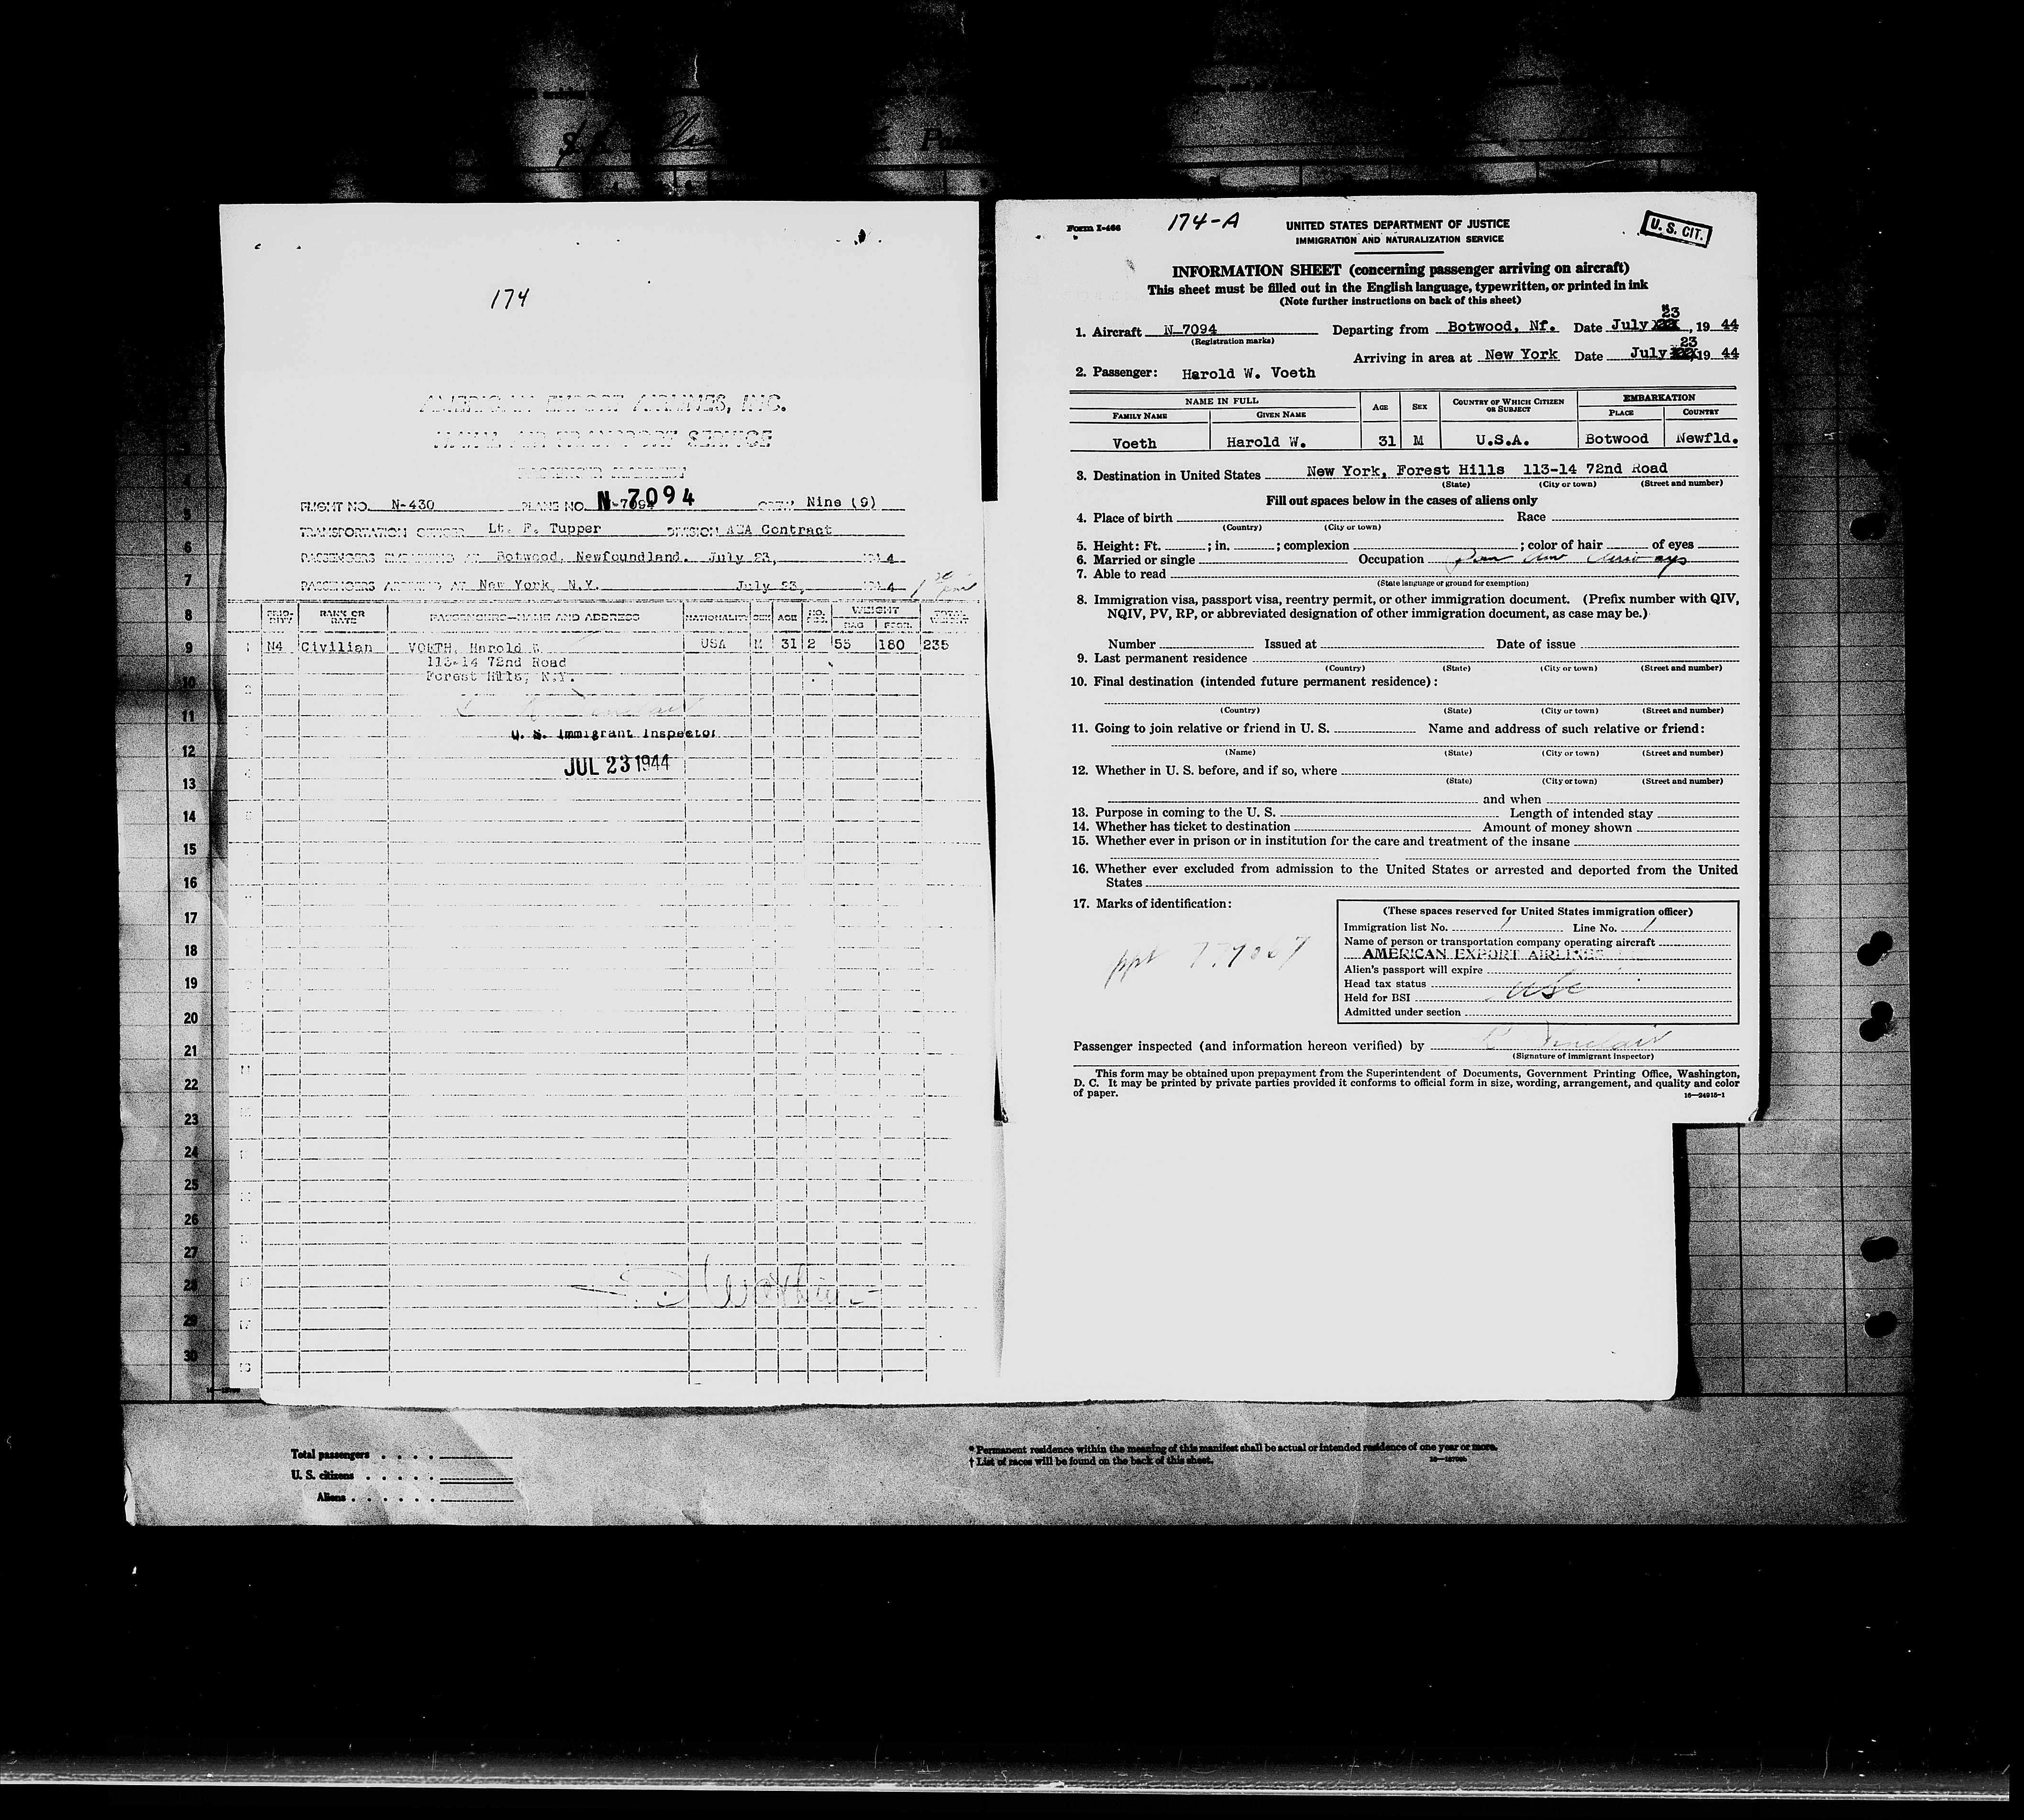 174
AMERICAN EXPORT AIRLINES, INC.
NAVAL AIR TRANSPORT SERVICE
PASSENGER MANIFEST
FLIGHT NO. N-430 PLANE NO. N-7094 N 7094 CREW Nine (9)
TRANSPORTATION OFFICER Lt. F. Tupper DIVISION AEA Contract
PASSENGERS EMBARKING AT Botwood, Newfoundland. July 23, 194 4
PASSENGERS ARRIVING AT New York, N.Y. July 23, 194 4
PRIORITY RANK OR RATE PASSENGERS—NAME AND ADDRESS NATIONALITY SEX AGE NO. PCS. WEIGHT BAG PSGR. TOTAL WEIGHT
1 N4 Civilian VOETH, Harold W. USA M 31 2 55 180 235
113-14 72nd Road
Forest Hills, N.Y.
Sinclair
U. S. Immigrant Inspector
JUL 23 1944
4
5
6
7
8
9
10
11
12
13
14
15
16
17
18
19
20
21
22
23
24
25
26
27
28
29
30
Total passengers
U. S. citizens
Aliens
Form I-466 174-A UNITED STATES DEPARTMENT OF JUSTICE U. S. CIT.
IMMIGRATION AND NATURALIZATION SERVICE
INFORMATION SHEET (concerning passenger arriving on aircraft)
This sheet must be filled out in the English language, typewritten, or printed in ink
(Note further instructions on back of this sheet)
23
1. Aircraft N 7094 Departing from Botwood, Nf. Date July , 19 44
(Registration marks)
23
Arriving in area at New York Date July 19 44
2. Passenger: Harold W. Voeth
NAME IN FULL AGE SEX COUNTRY OF WHICH CITIZEN OR SUBJECT EMBARKATION
FAMILY NAME GIVEN NAME PLACE COUNTRY
Voeth Harold W. 31 M U.S.A. Botwood Newfld.
3. Destination in United States New York, Forest Hills 113-14 72nd Road
(State) (City or town) (Street and number)
Fill out spaces below in the cases of aliens only
4. Place of birth Race
(Country) (City or town)
5. Height: Ft. ; in. ; complexion ; color of hair of eyes
6. Married or single Occupation Pan Am Airways
7. Able to read
(State language or ground for exemption)
8. Immigration visa, passport visa, reentry permit, or other immigration document. (Prefix number with QIV,
NQIV, PV, RP, or abbreviated designation of other immigration document, as case may be.)
Number Issued at Date of issue
9. Last permanent residence
(Country) (State) (City or town) (Street and number)
10. Final destination (intended future permanent residence):
(Country) (State) (City or town) (Street and number)
11. Going to join relative or friend in U. S. Name and address of such relative or friend:
(Name) (State) (City or town) (Street and number)
12. Whether in U. S. before, and if so, where
(State) (City or town) (Street and number)
and when
13. Purpose in coming to the U. S. Length of intended stay
14. Whether has ticket to destination Amount of money shown
15. Whether ever in prison or in institution for the care and treatment of the insane
16. Whether ever excluded from admission to the United States or arrested and deported from the United
States
17. Marks of identification:
ppt
(These spaces reserved for United States immigration officer)
Immigration list No. 1 Line No. 1
Name of person or transportation company operating aircraft
AMERICAN EXPORT AIRLINES
Alien's passport will expire
Head tax status
Held for BSI USC
Admitted under section
Passenger inspected (and information hereon verified) by Sinclair
(Signature of immigrant inspector)
This form may be obtained upon prepayment from the Superintendent of Documents, Government Printing Office, Washington,
D. C. It may be printed by private parties provided it conforms to official form in size, wording, arrangement, and quality and color
of paper.
16—24915-1
* Permanent residence within the meaning of this manifest shall be actual or intended residence of one year or more.
† List of races will be found on the back of this sheet.